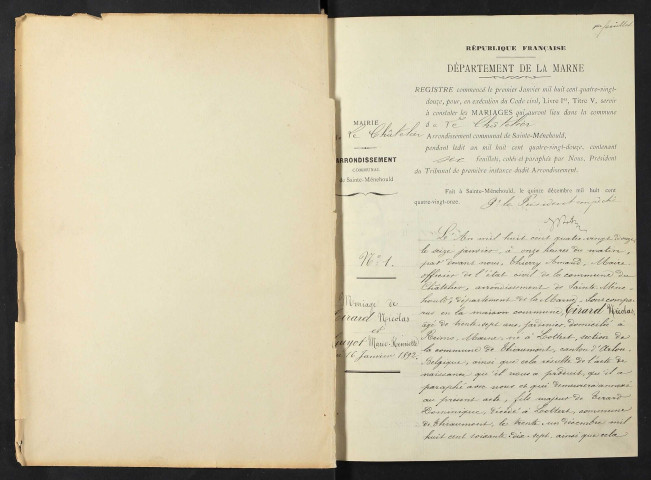 1er feuillet
RÉPUBLIQUE FRANÇAISE
DÉPARTEMENT DE LA MARNE
REGISTRE commencé le premier Janvier mil huit cent quatre-vingt-
douze, pour, en exécution du Code civil, Livre Ier, Titre V, servir
à constater les MARIAGES qui auront lieu dans la commune
de Le Châtelier
Arrondissement communal de Sainte-Ménehould,
pendant ledit an mil huit cent quatre-vingt-douze, contenant
six feuillets, cotés et paraphés par Nous, Président
du Tribunal de première instance dudit Arrondissement.
Fait à Sainte-Ménehould, le quinze décembre mil huit cent
quatre-vingt-onze.
Pr le Président empêché
MAIRIE
Le Châtelier
ARRONDISSEMENT
COMMUNAL
de Sainte-Ménehould.
No 1.
Mariage de
Girard Nicolas
et
Guyot Marie-Henriette
16 Janvier 1892.
L'An mil huit cent quatre-vingt-douze,
le seize janvier à onze heures du matin,
par devant nous, Thierry Amand, Maire
officier de l'état civil de la commune du
Châtelier, arrondissement de Sainte-Méne-
hould, département de la Marne, sont compa-
rus en la maison commune, Girard Nicolas,
âgé de trente-sept ans, domicilié à
Reims, Marne, né à Lottert, section de
la commune de Thiaumont, canton d'Arlon,
Belgique, ainsi que cela résulte de l'acte de
naissance qu'il nous a présenté, qu'il a
paraphé avec nous et qui demeurera annexé
au présent acte, fils majeur de Girard
Dominique, décédé à Lottert, commune
de Thiaumont, le trente-un décembre mil
huit cent soixante-dix-sept, ainsi que cela